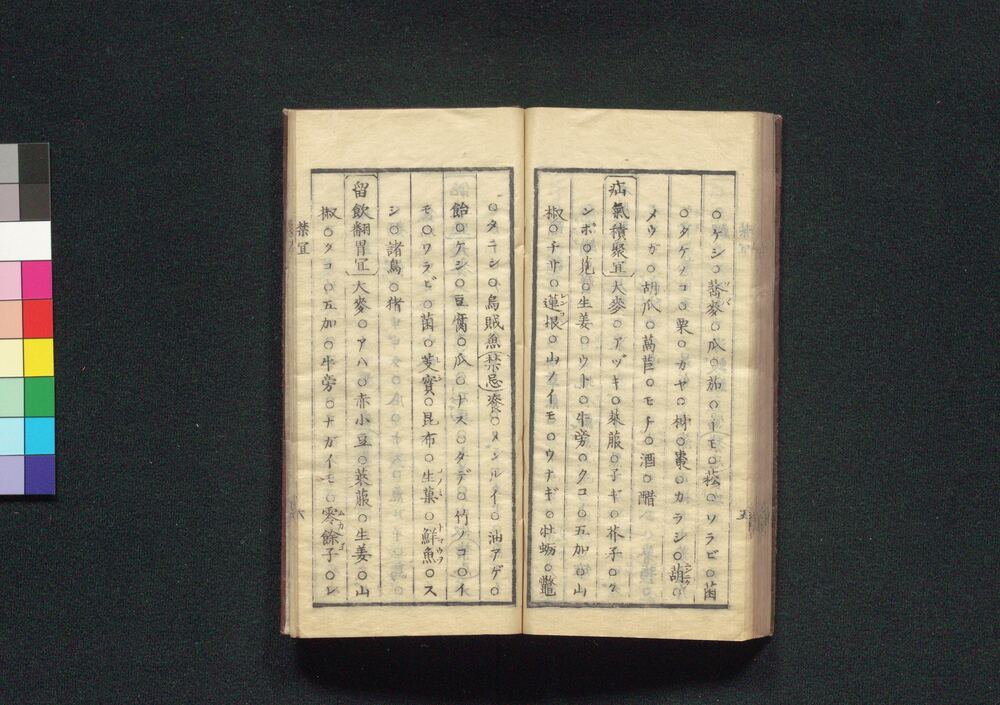 ○ケシ○蕎麥○瓜○茄○イモ○菘○ワラビ○菌
○タケノコ○栗○カヤ○榯○棗○カラシ○葫○
メウガ○胡瓜○萵苣○モチ○酒○醋
疝氣積聚宜 大麥○アヅキ○萊菔○子ギ○芥子○ク
シポ○葱○生姜○ウト○牛旁○クコ○五加○山
椒○チサ○蓮根○山ノイモ○ウナギ○牡蛎○鼈
○タニシ○烏賊魚 禁忌 麥○メンルイ○油アゲ○
飴○ケシ○豆腐○瓜○ナス○タデ○竹ノコ○イ
モ○ワラビ○菌○菱實○昆布○生菓○鮮魚○ス
シ○諸鳥○猪
留飲翻胃宜 大麥○アハ○赤小豆○萊菔○生姜○山
椒○クコ○五加○牛旁○ナガイモ○零餘子○レ
禁宜
六